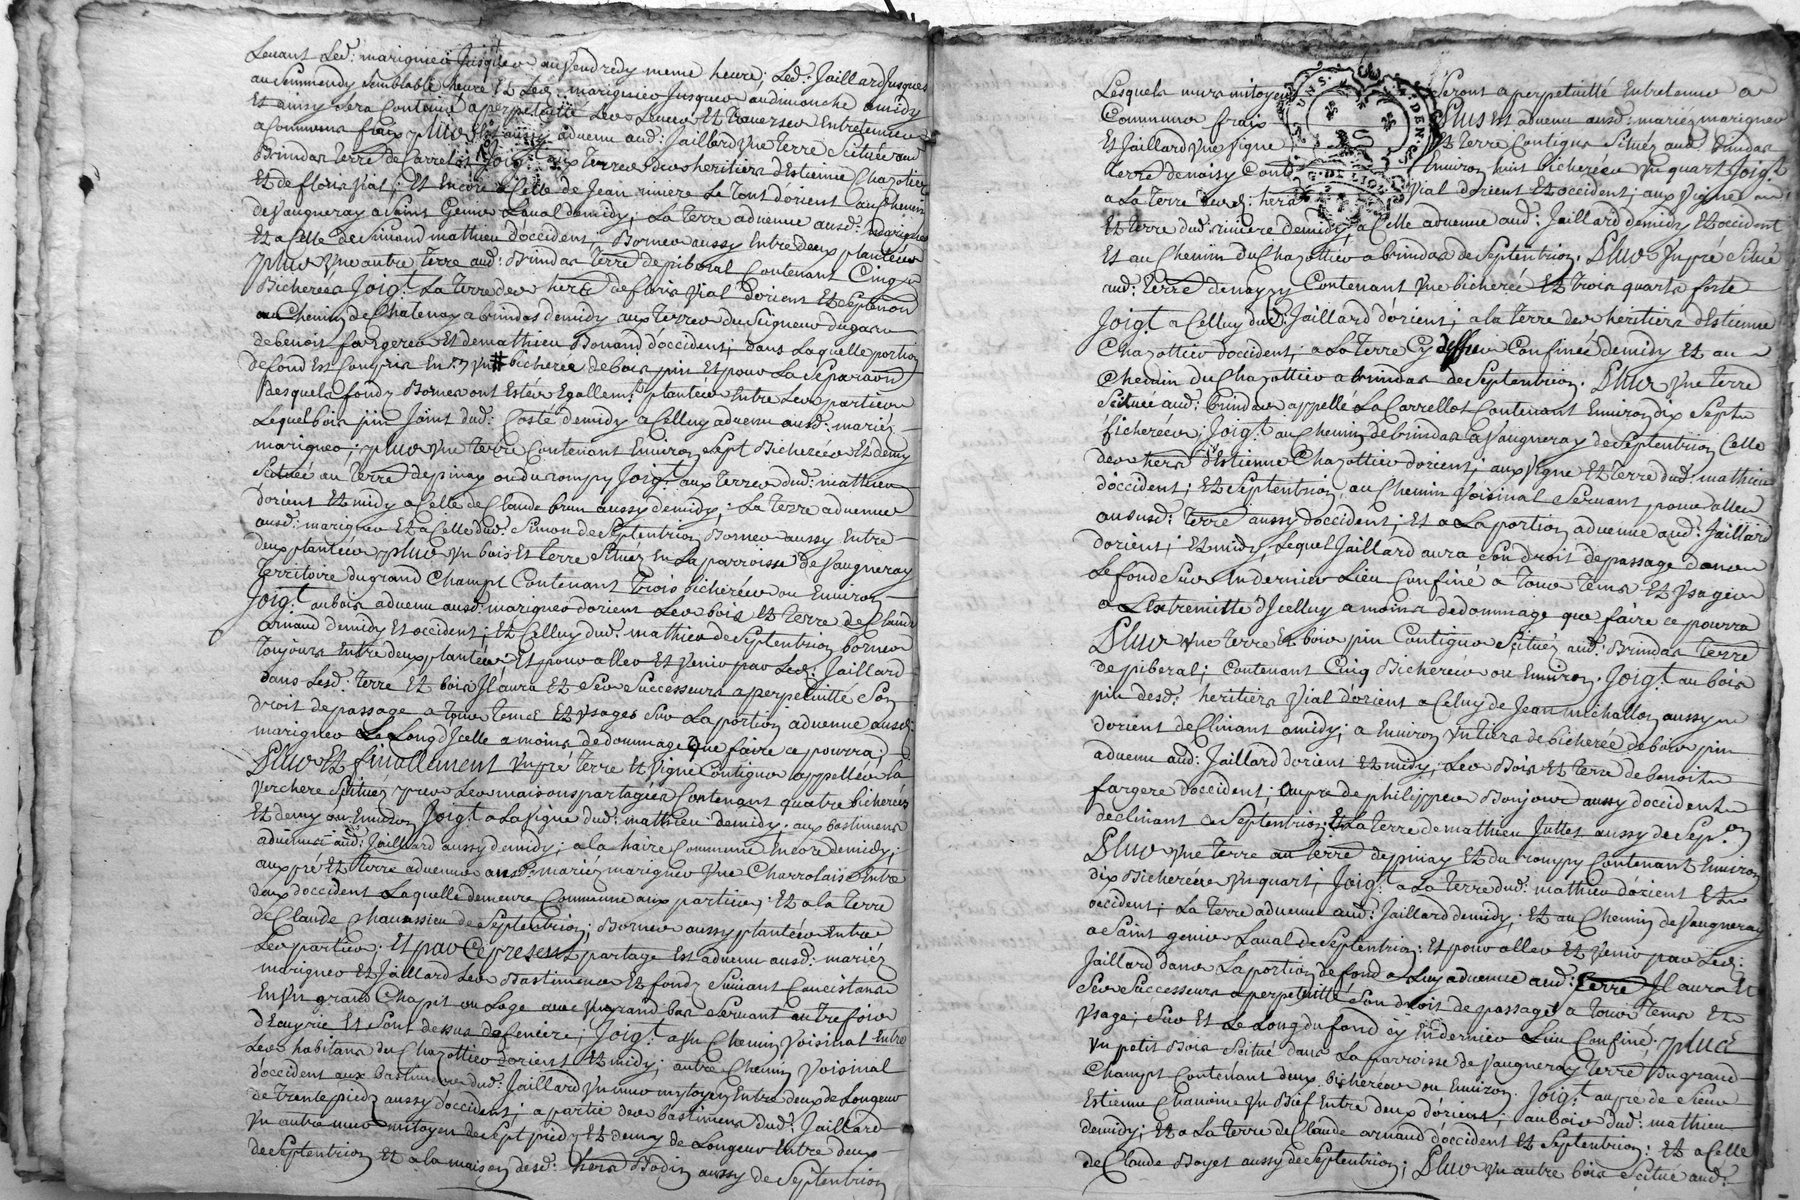 Levant Led: marignier Jusques au Vendredy meme heure; Led: Jaillard Jusques
au semblable heure Et Led: marignier Jusques au dimanche a midy
Et ainsy sera Continué a perpetuitté Les Et traverser Entretenues
a Communs fraix, plus Est aussy advenu aud: Jaillard Vne terre Scituée aud:
Brindas terre de Carrelot Joig.t aux terres des heritiers d'Estienne Chazottier
Et de floris Vial; Et Encore a Celle de Jean riviere Le tout d'orient au Chemin
de Vaugneray a Saint Genis Laval de midy; La terre advenue ausd: marignes
Et a Celle de Simond mathieu d'occident; Bornes aussy Entre deux plantées
plus Vne autre terre aud: Brindas terre de piberal Contenant Cinq
Bicherées Joig.t La terre des hers de floris Vial d'orient Et Septrion
au Chemin de Chatenay a brindas de midy aux terres du Seigneur du
de benoit fargeres Et de mathieu Bonand d'occident; dans Laquelle portion
de fond Est Compris Vn # bicherée de bois pin Et pour La Separaon
Desquels fonds Bornes ont Estés Egallem.t plantées Entre Les parties
Lequel bois pin Joint dud: Costé de midy a Celluy advenu ausd: mariés
marignes; plus Vne terre Contenant Environ Sept Bicherées Et demy
Scituée au terre de pinay ou du rompy Joig.t aux terres dud: mathieu
d'orient Et midy a Celle de Claude brun aussy de midy; La terre advenue
ausd: marignes Et a Celle dud: Simon de Septentrion Bornes aussy Entre
deux plantées plus Vn bois Et terre Scitués En La parroisse de Vaugneray
Territoire du grand Champt Contenant trois bicherées ou Environ
Joig.t au bois advenu ausd: marignes d'orient Les bois Et terre de Claude
arnaud de midy Et occident; Et Celluy dud: mathieu de Septentrion bornes
toujours Entre deux plantées Et pour aller Et Venir par Led: Jaillard
dans Lesd: terre Et bois Jl aura Et Ses Successeurs a perpetuitte Son
droit de passage a tous tems Et Vsages Sur La portion advenue ausd:
marignes Le Long d'Jcelle a moins de dommage que faire ce pourra;
Plus Et finallement Vn pré terre Et Vigne Contigus appellés La
Verchere Scitués pres Les maisons partagées Contenant quatre bicherées
Et demy ou Environ Joig.t a La Vigne dud: mathieu de midy; aux bastiments
advenus aud: Jaillard aussy de midy; a la haire Commune Encore de midy;
aux pré Et terre advenus ausd: mariés marignes Vne Charrolaise Entre
deux d'occident Laquelle demeure Commune aux parties; Et a la terre
de Claude Chaussieu de Septentrion; Bornes aussy plantées Entre
Les parties; Et par Ce present partage Est advenu ausd: mariés
marignes Et Jaillard Les Bastimens Et fonds Suivant Concistans
En Vn grand Chapit ou Loge avec Vn grand bas Servant autre fois
d'Ecurie Et Son dessus de feniere; Joig.t a Vn Chemin Voisinal Entre
Les habitans du Chazottier d'orient Et midy; autre Chemin Voisinal
d'occident aux bastimens dud: Jaillard Vn mur mytoyen Entre deux de Longeur
de trente pieds aussy d'occident; a partie des bastimens dud: Jaillard
Vn autre mur mitoyen de Sept pieds Et demy de Longeur Entre deux
de Septentrion Et a la maison desd: hers Bodin aussy de Septentrion
Lesquels murs mitoyens Seront a perpetuitté Entretenus a
Communs fraix Plus Est advenu ausd: mariés marignes
Et Jaillard Vne Vigne Et terre Contigus Scitués aud: brindas
terre de noisy Cont Environ huit bicherées Vn quart Joig.t
a La terre desd: hers Vial d'orient Et occident; aux Vignes
Et terre dud: riviere de midy; a Celle advenue aud: Jaillard de midy Et occident
Et au Chemin du Chazottier a brindas de Septentrion; Plus Vn pré Scitué
aud: terre de noizy Contenant Vne bicherée Et trois quarts forte
Joig.t a Celluy dud: Jaillard d'orient; a la terre des heritiers d'Estienne
Chazottier d'occident; a La terre Cy dessus Confinée de midy Et au
Chemin du Chazottier a brindas de Septentrion. Plus Vne terre
Scituée aud: brindas appellé La Carrellot Contenant Environ dix Sept
bicherées; Joig.t au Chemin de brindas a Vaugneray de Septentrion Celle
des hers d'Estienne Chazottier d'orient; aux Vigne Et terre dud: mathieu
d'occident; Et Septentrion, au Chemin Voisinal Servant pour aller
au susd: terre aussy d'occident; Et a La portion advenue aud: Jaillard
d'orient; Et midy, Lequel Jaillard aura Son droit de passage dans
Le fond Sus En dernier Lieu Confiné a tous tems Et Vsages
a L'Extremitté d'Jcelluy a moins de dommage que faire ce pourra
Plus Vne terre Et bois pin Contigus Scitués aud: Brindas terre
de piberal; Contenant Cinq Bicherées ou Environ. Joig.t au bois
pin desd: heritiers Vial d'orient a Celuy de Jean michallon aussy
d'orient declinant a midy; a Environ Vn tiers de bicherée de bois pin
advenu aud: Jaillard d'orient Et midy; Les Bois Et terre de benoit
fargere d'occident; au pré de philippes Bonjour aussy d'occident
declinant a Septentrion: Et La terre de mathieu Juttet aussy de Sep.on
Plus Vne terre au terre de pinay Et du rompy Contenant Environ
dix Bicherées Vn quart; Joig.t a La terre dud: mathieu d'orient Et
occident; La terre advenue aud: Jaillard de midy; Et au Chemin de Vaugneray
a Saint genis Laval de Septentrion: Et pour aller Et Venir par Led:
Jaillard dans La portion de fond a Luy advenue aud: terre Jl aura Et
Ses Successeurs a perpetuitté Son droit de passage a tous tems Et
Vsage; Sur Et Le Long du fond Cy En dernier Lieu Confiné. plus
Vn petit Bois Scitué dans La parroisse de Vaugneray terre du grand
Champt Contenant deux bicherées ou Environ. Joig.t au pré de Sieur
Estienne Chanoine Vn Bief Entre deux d'orient; au bois dud: mathieu
de midy; Et a La terre de Claude arnaud d'occident Et Septentrion: Et a Celle
de Claude Boyet aussy de Septentrion; Plus Vn autre bois Scitué aud: